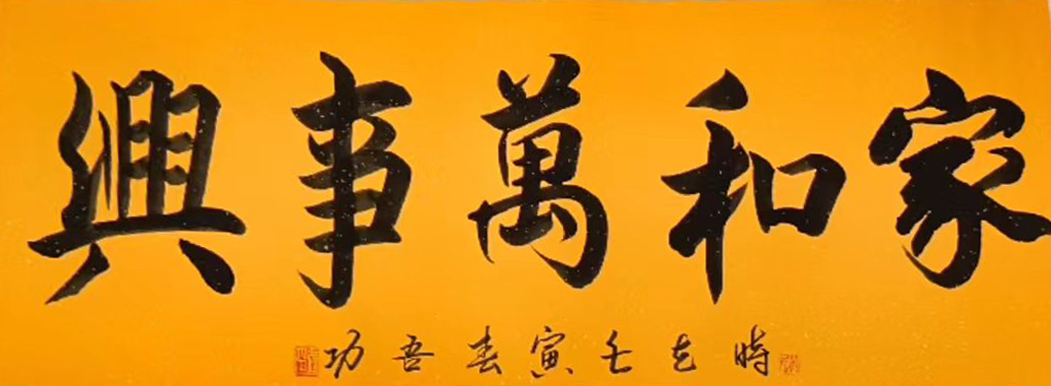 家和萬事興
時在壬寅春吾功